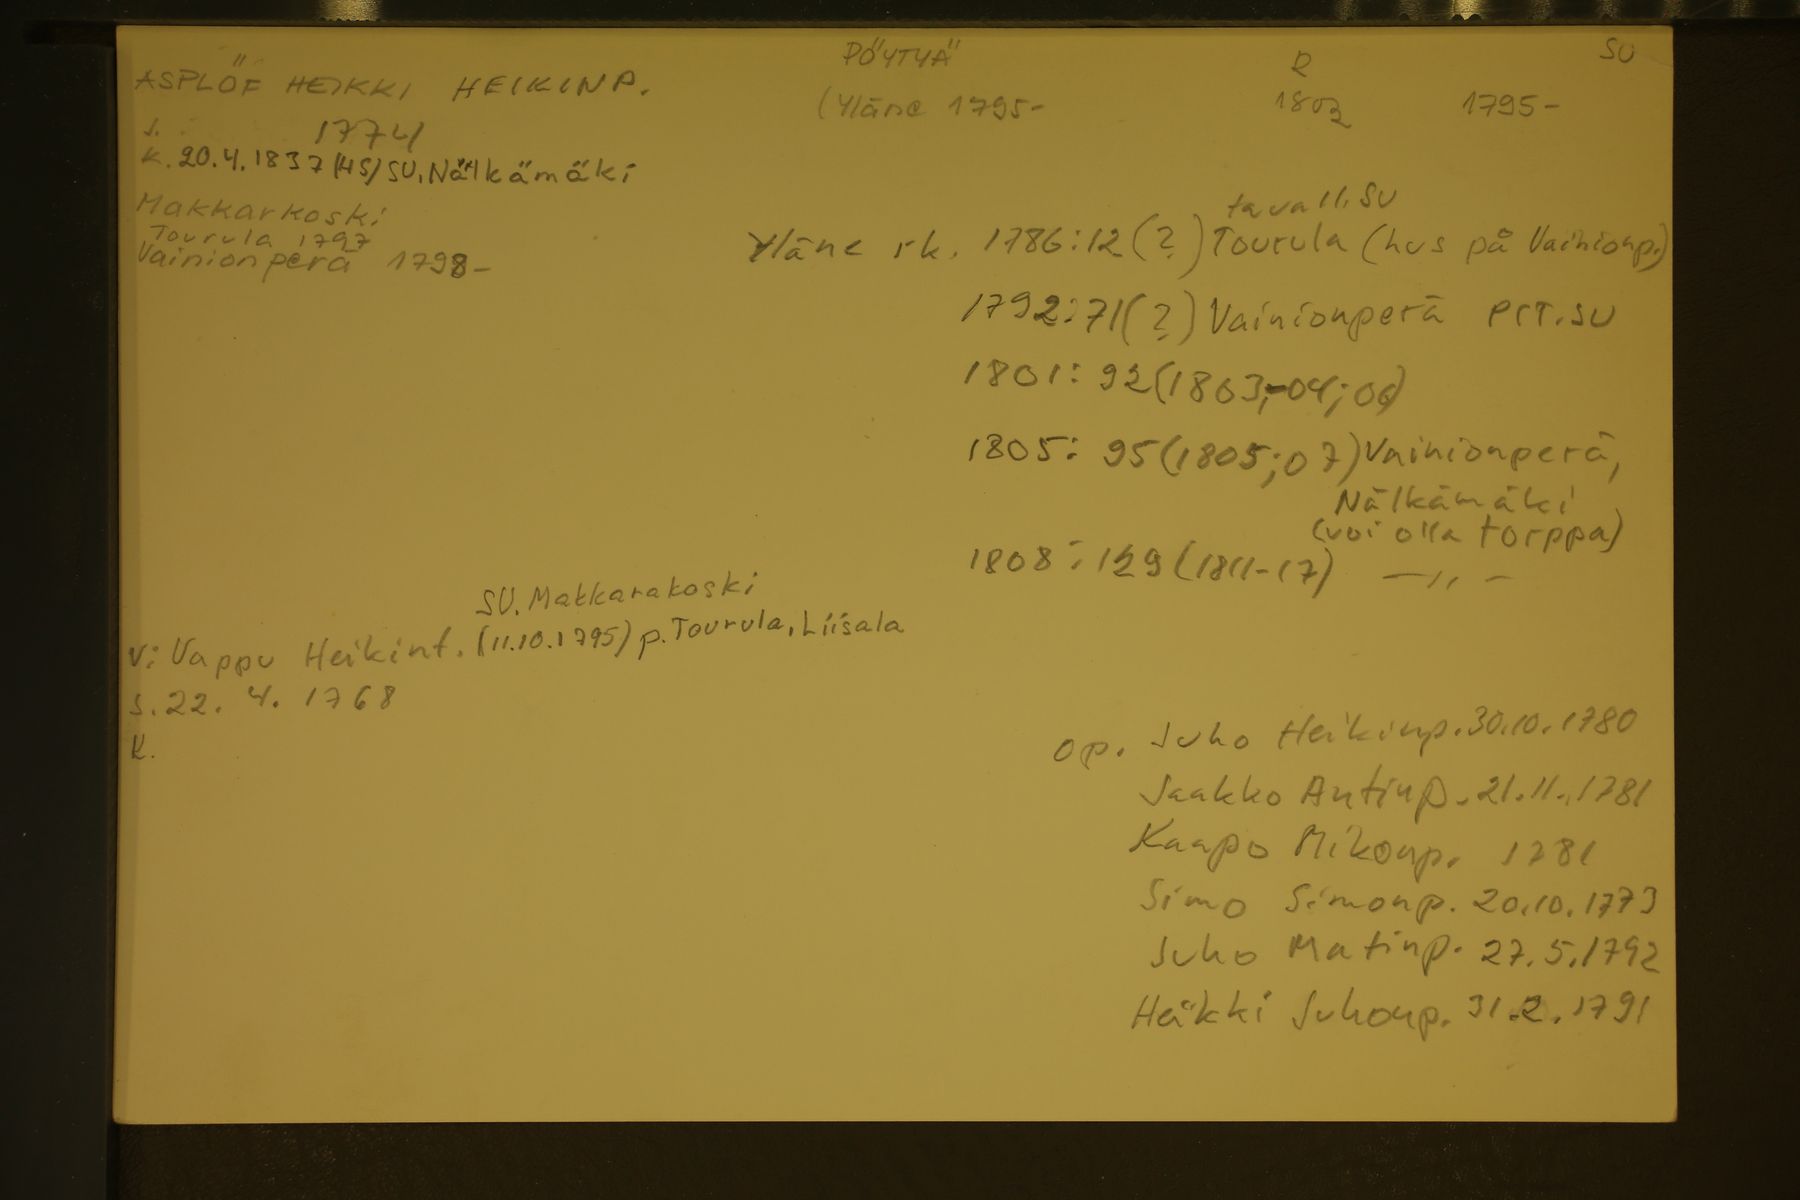 PÖYTYÄ R SU
ASPLÖF HEIKKI HEIKINP. (Yläne 1795- 1802 1795-
s. 1774
k. 20.4.1837 (HS) SU. Nälkämäki
Makkarkoski
Tourula 1797
Vainionperä 1798-
tavall. SU
Yläne rk. 1786:12 (?) Tourula (hus på Vainionp.)
1792:71 (?) Vainionperä PIT.SU
1801: 92 (1803,-04;06)
1805: 95 (1805;07) Vainionperä,
Nälkämäki
(voi olla torppa)
1808: 129 (1811-17) —,, —
SU. Makkarakoski
V: Vappu Heikint. (11.10.1795) p. Tourula, Liisala
s. 22. 4. 1768
K.
op. Juho Heikinp. 30.10.1780
Jaakko Antinp. 21.11.1781
Kaapo Mikonp. 1781
Simo Simonp. 20.10.1773
Juho Matinp. 27.5.1792
Heikki Juhonp. 31.2.1791